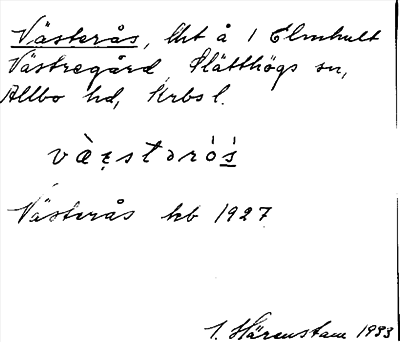 Västerås, Aht å 1 Elmhult
Västregård, Slätthögs sn,
Allbo hd, Krbs l.
væ̀stəró̀s
Västerås kb 1927
I. Härenstam 1933